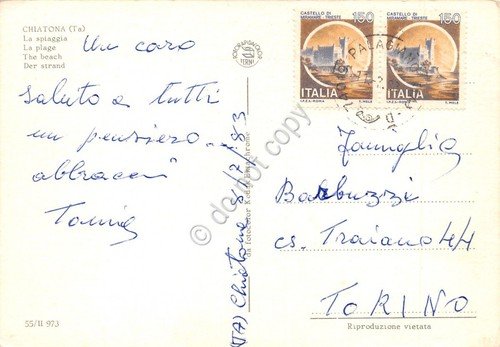 CHIATONA (Ta)
La spiaggia
La plage
The beach
Der strand
Un caro
saluto a tutti
un pensiero
abbracci
55/II 973
(TA) Chiatona 8/7/83
da fotocolor Kodak Ektachrome
TERNI
CASTELLO DI
MIRAMARE - TRIESTE
150
ITALIA
I.P.Z.S.-ROMA
E. MELE
CASTELLO DI
MIRAMARE - TRIESTE
150
ITALIA
I.P.Z.S.-ROMA
E. MELE
Famiglia
Barbuzzi
cs. Traiano 44
TORINO
Riproduzione vietata
do not copy